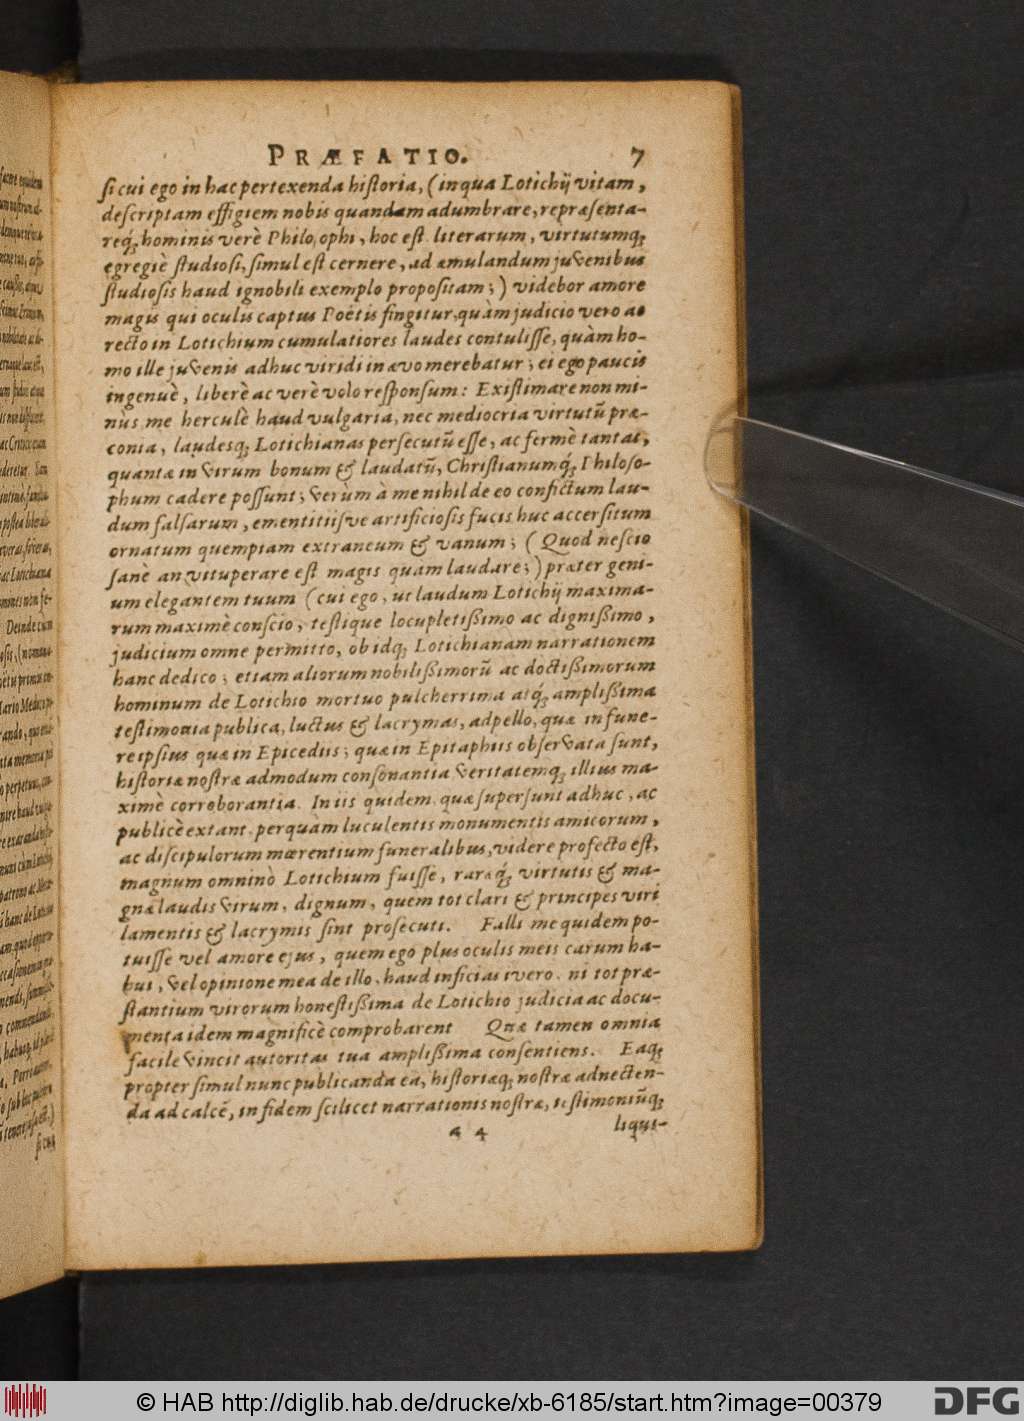 PRÆFATIO. 7
si cui ego in hac pertexenda historia, (in qua Lotichij vitam,
descriptam effigiem nobis quandam adumbrare, repræsenta-
req́; hominis verè Philosophi, hoc est literarum, virtutumq́;
egregiè studiosi, simul est cernere, ad æmulandum juvenibus
studiosis haud ignobili exemplo propositam;) videbor amore
magis qui oculis captus Poëtis fingitur, quàm judicio vero ac
recto in Lotichium cumulatiores laudes contulisse, quàm ho-
mo ille juvenis adhuc viridi in ævo merebatur; ei ego paucis
ingenuè, liberè ac verè volo responsum: Existimare non mi-
nùs me herculè haud vulgaria, nec mediocria virtutũ præ-
conia, laudesq; Lotichianas persecutũ esse, ac fermè tantas,
quantæ in virum bonum & laudatũ, Christianumq́; Philoso-
phum cadere possunt; verùm à me nihil de eo confictum lau-
dum falsarum, ementitiisve artificiosis fucis huc accersitum
ornatum quempiam extraneum & vanum; (Quod nescio
sanè an vituperare est magis quam laudare;) præter geni-
um elegantem tuum (cui ego, ut laudum Lotichij maxima-
rum maximè conscio, testique locupletißimo ac dignißimo,
judicium omne permitto, ob idq; Lotichianam narrationem
hanc dedico; etiam aliorum nobilißimorũ ac doctißimorum
hominum de Lotichio mortuo pulcherrima atq́; amplißima
testimonia publica, luctus & lacrymas, adpello, quæ in fune-
re ipsius quæ in Epicediis; quæ in Epitaphiis observata sunt,
historiæ nostræ admodum consonantia veritatemq; illius ma-
ximè corroborantia. In iis quidem quæ supersunt adhuc, ac
publicè extant perquàm luculentis monumentis amicorum,
ac discipulorum mœrentium funeralibus, videre profecto est,
magnum omninò Lotichium fuisse, raraq́; virtutis & ma-
gnæ laudis virum, dignum, quem tot clari & principes viri
lamentis & lacrymis sint prosecuti. Falli me quidem po-
tuisse vel amore ejus, quem ego plus oculis meis carum ha-
bui, vel opinione mea de illo, haud inficias ivero, ni tot præ-
stantium virorum honestißima de Lotichio judicia ac docu-
menta idem magnificè comprobarent Quæ tamen omnia
facile vincit autoritas tua amplißima consentiens. Eaq;
propter simul nunc publicanda ea, historiæq; nostræ adnecten-
da ad calcẽ, in fidem scilicet narrationis nostræ, testimoniũq;
a 4 liqui-
© HAB http://diglib.hab.de/drucke/xb-6185/start.htm?image=00379
DFG